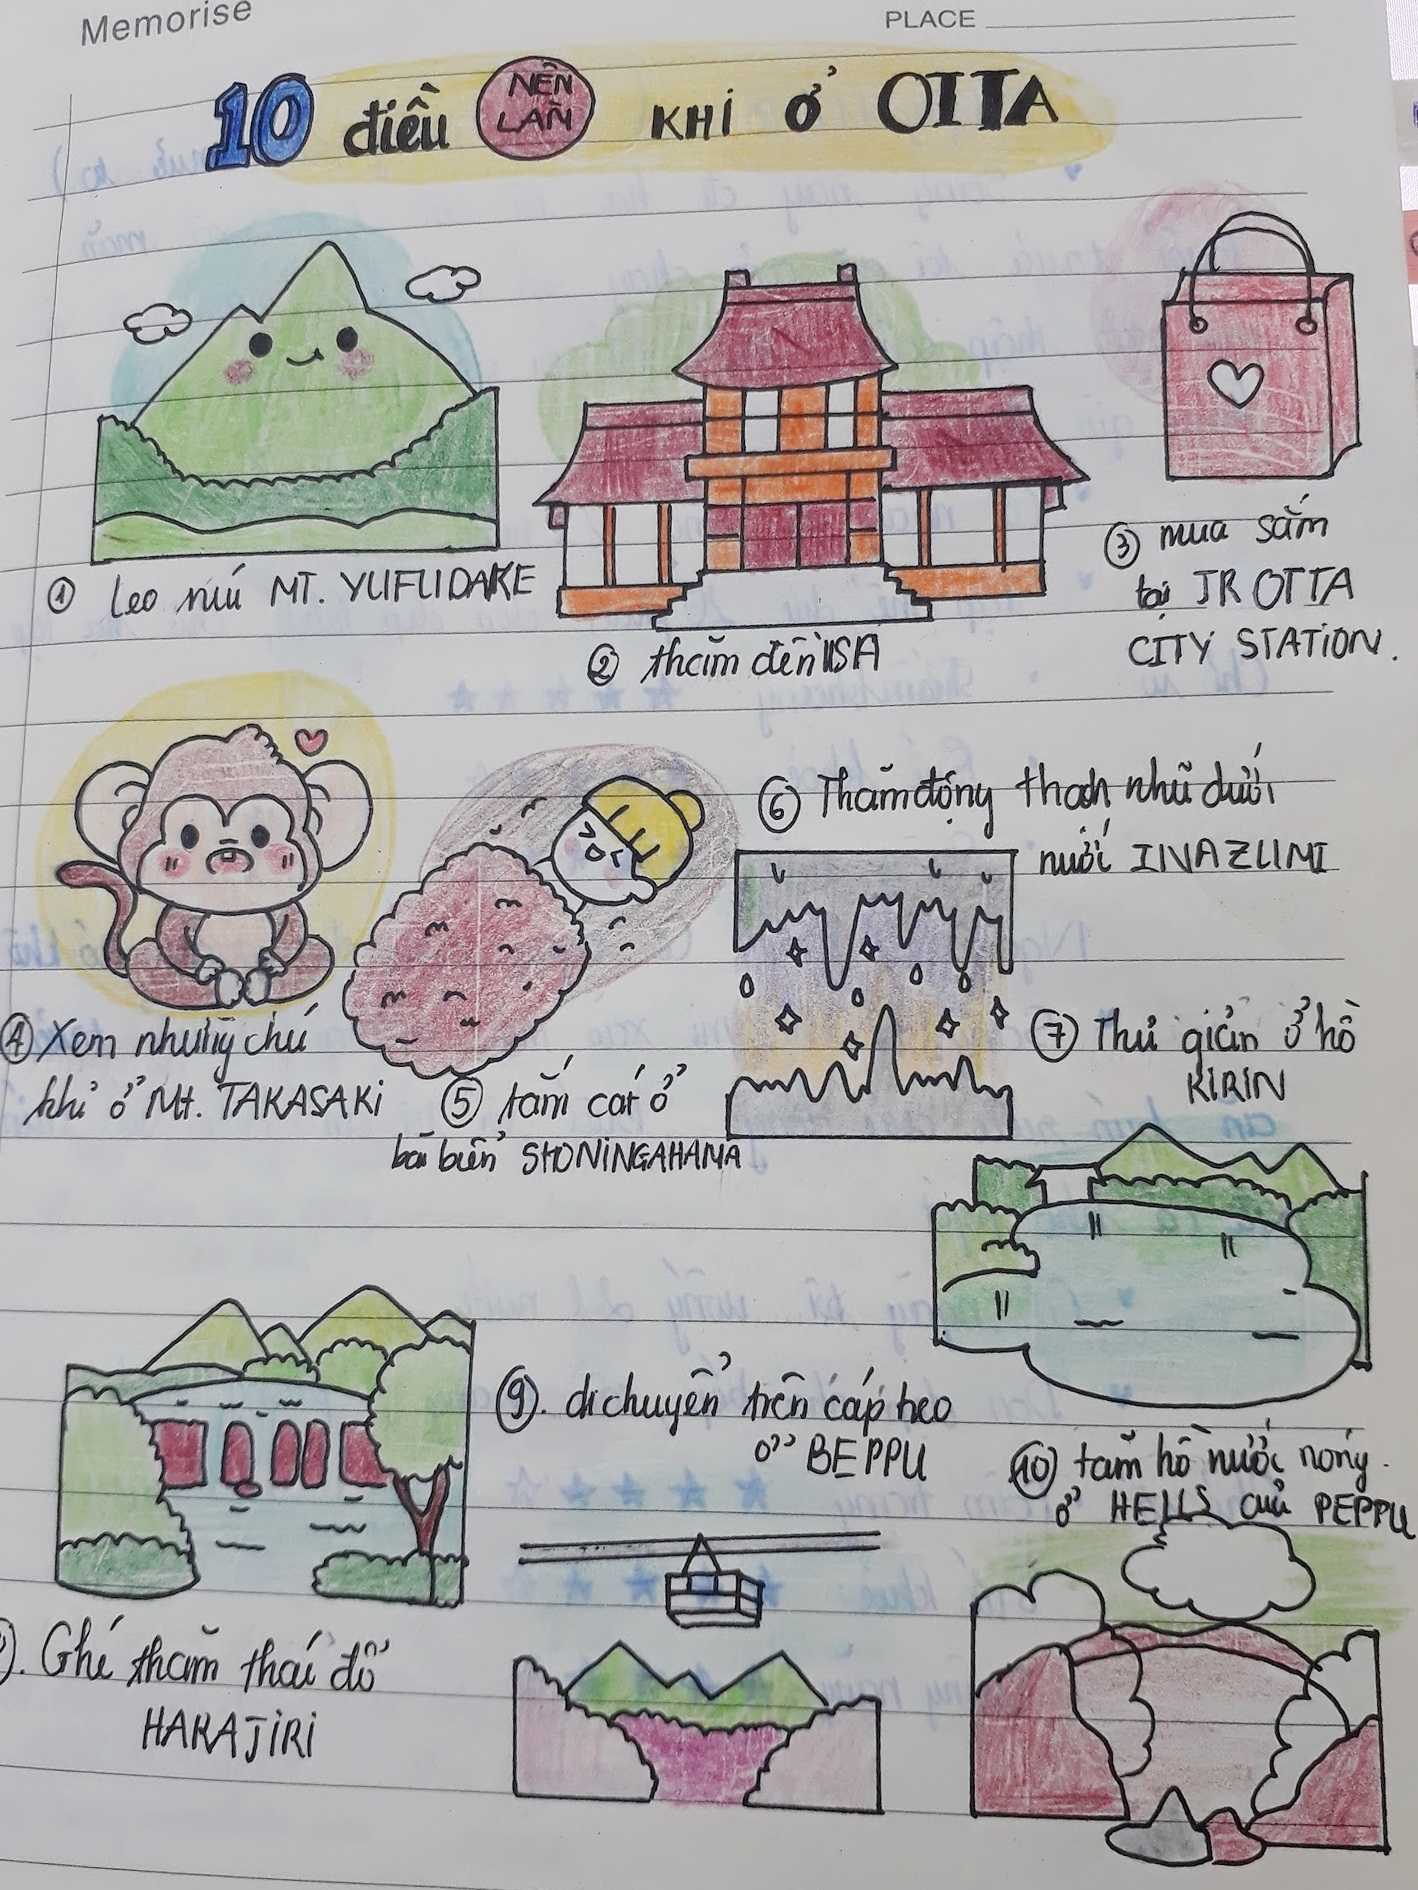 Memorise
PLACE
10 điều NÊN LÀM KHI Ở OITTA
① Leo núi MT. YUFUDAKE
② thăm đền USA
③ mua sắm
tại JR OITTA
CITY STATION.
④ Xem những chú
khỉ ở Mt. TAKASAKi
⑤ tắm cát ở
bãi biển SHONINGAHAMA
⑥ Thăm động thạch nhũ dưới
nước INAZUMI
⑦ Thư giãn ở hồ
KIRIN
. Ghé thăm thác đổ
HARAJIRI
⑨. di chuyển trên cáp treo
ở BEPPU
⑩ tắm hồ nước nóng.
ở HELLS của PEPPU